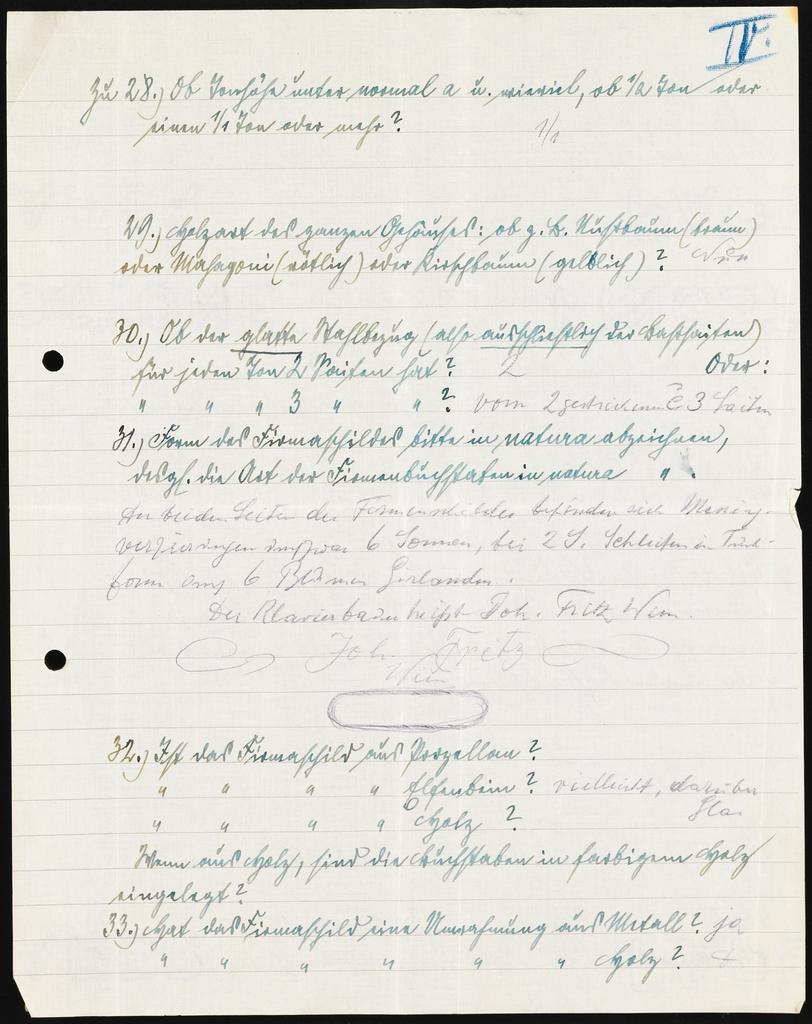 IV.
Zu 28.) Ob Tonhöhe unter normal a u. wieviel, ob 1/2 Ton oder
einen 1/1 Ton oder mehr? 1/1
29.) Holzart des ganzen Gehäuses: ob z. B. Nußbaum (braun)
oder Mahagoni (rötlich) oder Kirschbaum (gelblich)? Nuß
30.) Ob der glatte Stahlbezug (also ausschließlich der Baßsaiten)
für jeden Ton 2 Saiten hat? 2 Oder:
" " " 3 " " ? vom 2 gestrichenen C 3 Saiten
31.) Form des Firmaschildes bitte in natura abzeichnen,
desgl. die Art der Firmenbuchstaben in natura " .
An beiden Seiten des Firmenschildes befinden sich Messing-
verzierungen und zwar 6 Sonnen, bei 2 S. Schleifen in
form und 6 Blumen Girlanden.
Der Klavierbauer heißt Joh. Fritz Wien.
Joh. Fritz
Wien
32.) Ist das Firmaschild aus Porzellan?
" " " " Elfenbein? vielleicht, darüber
Glas
" " " " Holz ?
Wenn aus Holz, sind die Buchstaben in farbigem Holz
eingelegt?
33.) Hat das Firmaschild eine Umrahmung aus Metall? ja
" " " " " " Holz?